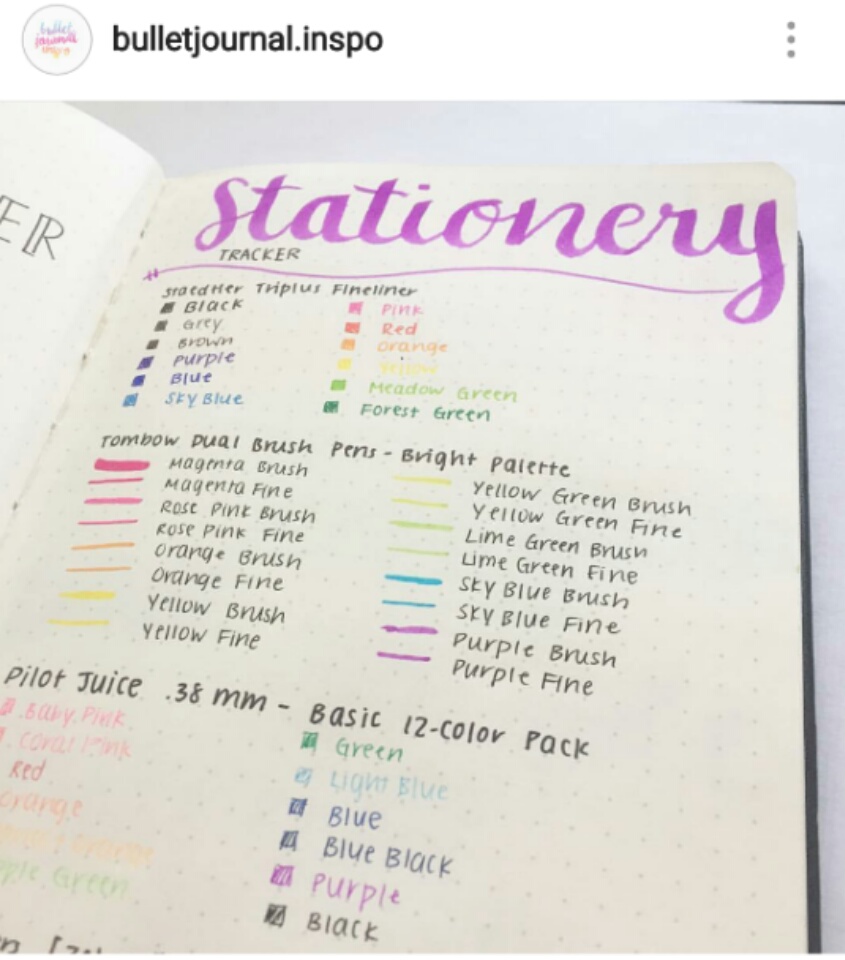 bullet
journal
inspo
bulletjournal.inspo
ER
Stationery
TRACKER
Staedtler Triplus Fineliner
Black
Grey
Brown
Purple
Blue
Sky Blue
Pink
Red
Orange
Yellow
Meadow Green
Forest Green
Tombow Dual Brush Pens - Bright Palette
Magenta Brush
Magenta Fine
Rose Pink Brush
Rose Pink Fine
Orange Brush
Orange Fine
Yellow Brush
Yellow Fine
Yellow Green Brush
Yellow Green Fine
Lime Green Brush
Lime Green Fine
Sky Blue Brush
Sky Blue Fine
Purple Brush
Purple Fine
Pilot Juice .38 mm - Basic 12-Color Pack
Baby Pink
Coral Pink
Red
Orange
Green
Green
Light Blue
Blue
Blue Black
Purple
Black